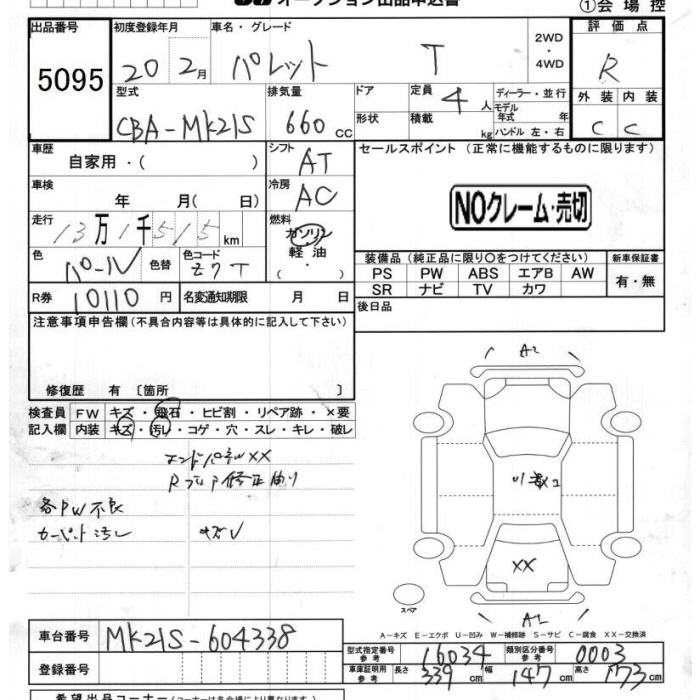 オークション出品申込書
①会場控
出品番号
5095
初度登録年月
20 2月
車名・グレード
パレット T
2WD
・
4WD
評価点
R
外装 内装
C C
型式
CBA-MK21S
排気量
660 cc
ドア
形状
定員 4 人
積載 kg
ディーラー・並行
モデル年式 年
ハンドル 左・右
車歴
自家用・( )
シフト
AT
車検
年 月( 日)
冷房
AC
走行
13万1千515km
燃料
ガソリン
・
軽油
( ・ )
色
パール
色替
色コード
Z7T
R券 10110 円
名変通知期限 月 日
セールスポイント (正常に機能するものに限ります)
NOクレーム・売切
装備品 (純正品に限り○をつけてください)
新車保証書
PS PW ABS エアB AW
SR ナビ TV カワ
有・無
後日品
注意事項申告欄(不具合内容等は具体的に記入して下さい)
修復歴 有 〔箇所 〕
検査員
記入欄
FW キズ・飛石・ヒビ割・リペア跡・×要
内装 キズ・汚れ・コゲ・穴・スレ・キレ・破レ
エンドパネルXX
Rフロア修正有り
各PW不良
カーペット汚レ
A2
XX
スペア
A2
A-キズ E-エクボ U-凹み W-補修跡 S-サビ C-腐食 XX-交換済
車台番号 MK21S-604338
登録番号
型式指定番号
参考
16034
類別区分番号
参考
0003
車庫証明用
参考
長さ 339 cm 幅 147 cm 高さ 173 cm
希望出品コーナー